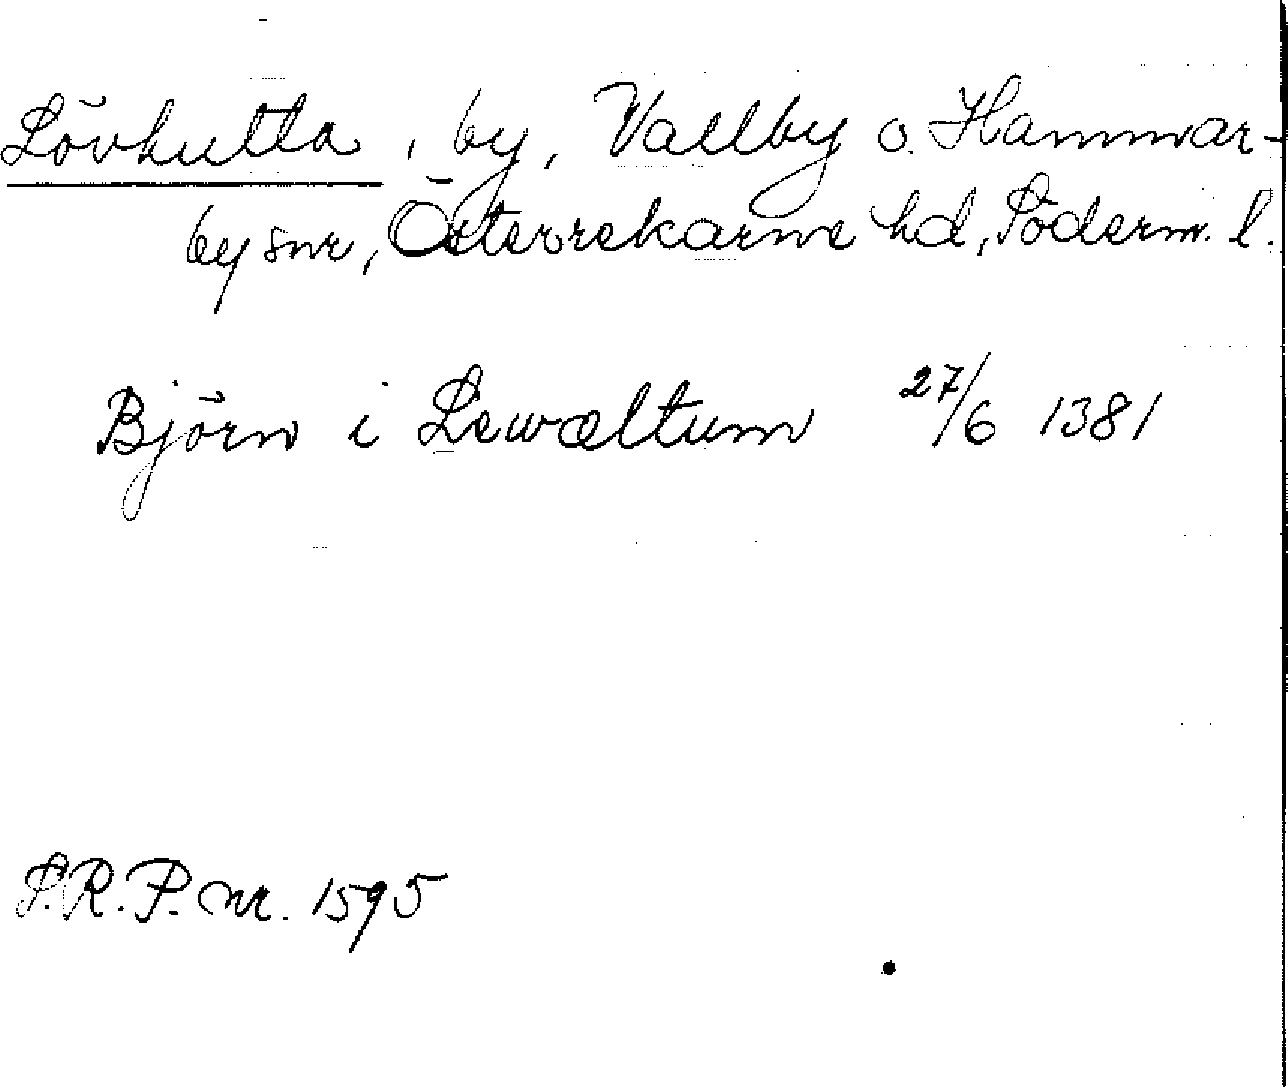 Lövhulta, by, Vallby o. Hammar-
by snr, Österrekarne hd, Söderm. l.
Björn i Lewæltum 27/6 1381
S.R.P. nr. 1595